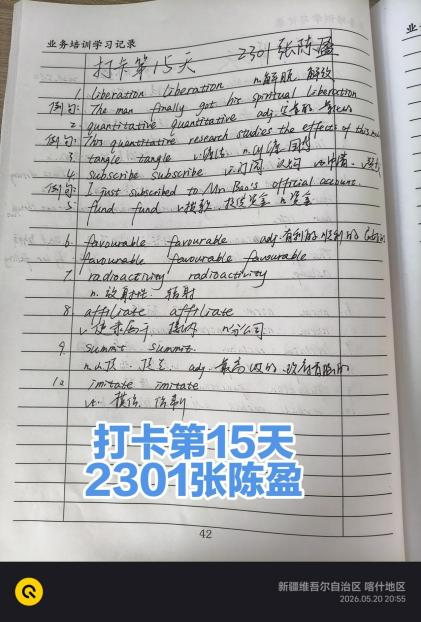 业务培训学习记录
打卡第15天 2301张陈盈
1. liberation liberation n.解脱，解放
例句: The man finally got his spiritual liberation
2. quantitative quantitative adj.定量的
例句: This quantitative research studies the effect of this
3. tangle tangle
4. subscribe subscribe v.订阅
例句: I just subscribed to Mr. Bao's official account.
5. fund fund v.拨款 n.资金
6. favourable favourable adj.有利的 顺利的
favourable favourable favourable
7. radioactivity radioactivity
n. 放射性 辐射
8. affiliate affiliate
v.使隶属于 n.分公司
9. summit summit
adj. 最高级的
10 imitate imitate
vt. 模仿 仿制
打卡第15天
2301张陈盈
42
新疆维吾尔自治区 喀什地区
2026.05.20 20:55